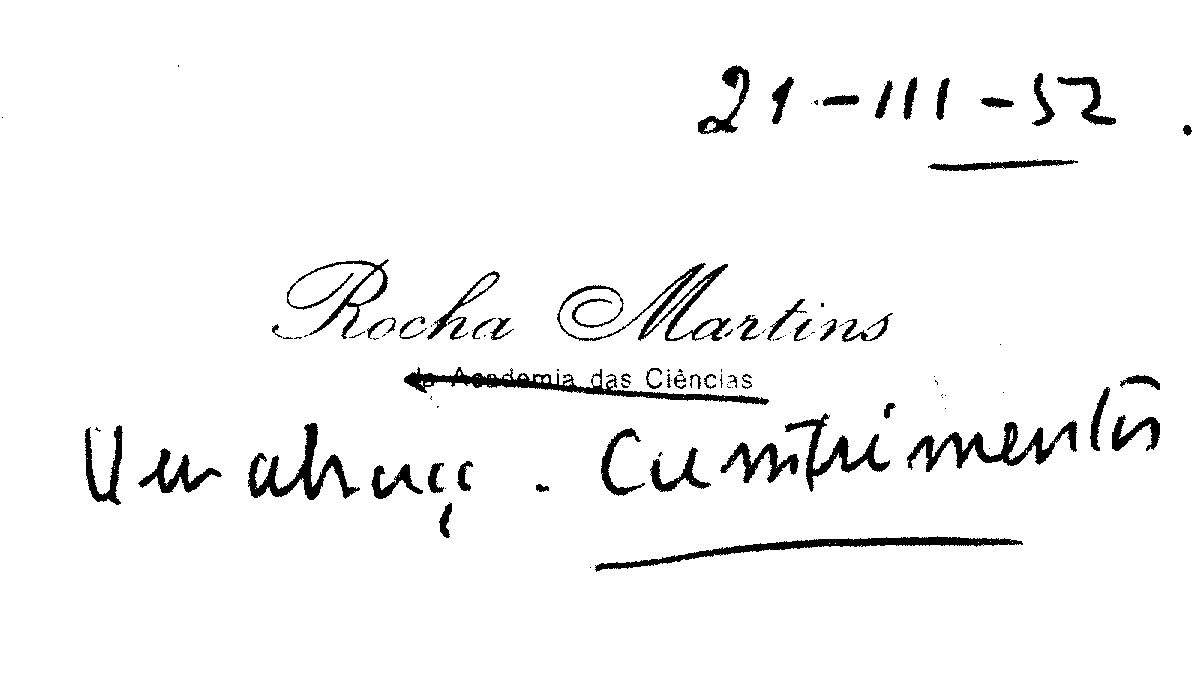 21-III-52
Rocha Martins
da Academia das Ciências
Um abraço. Cumprimentos